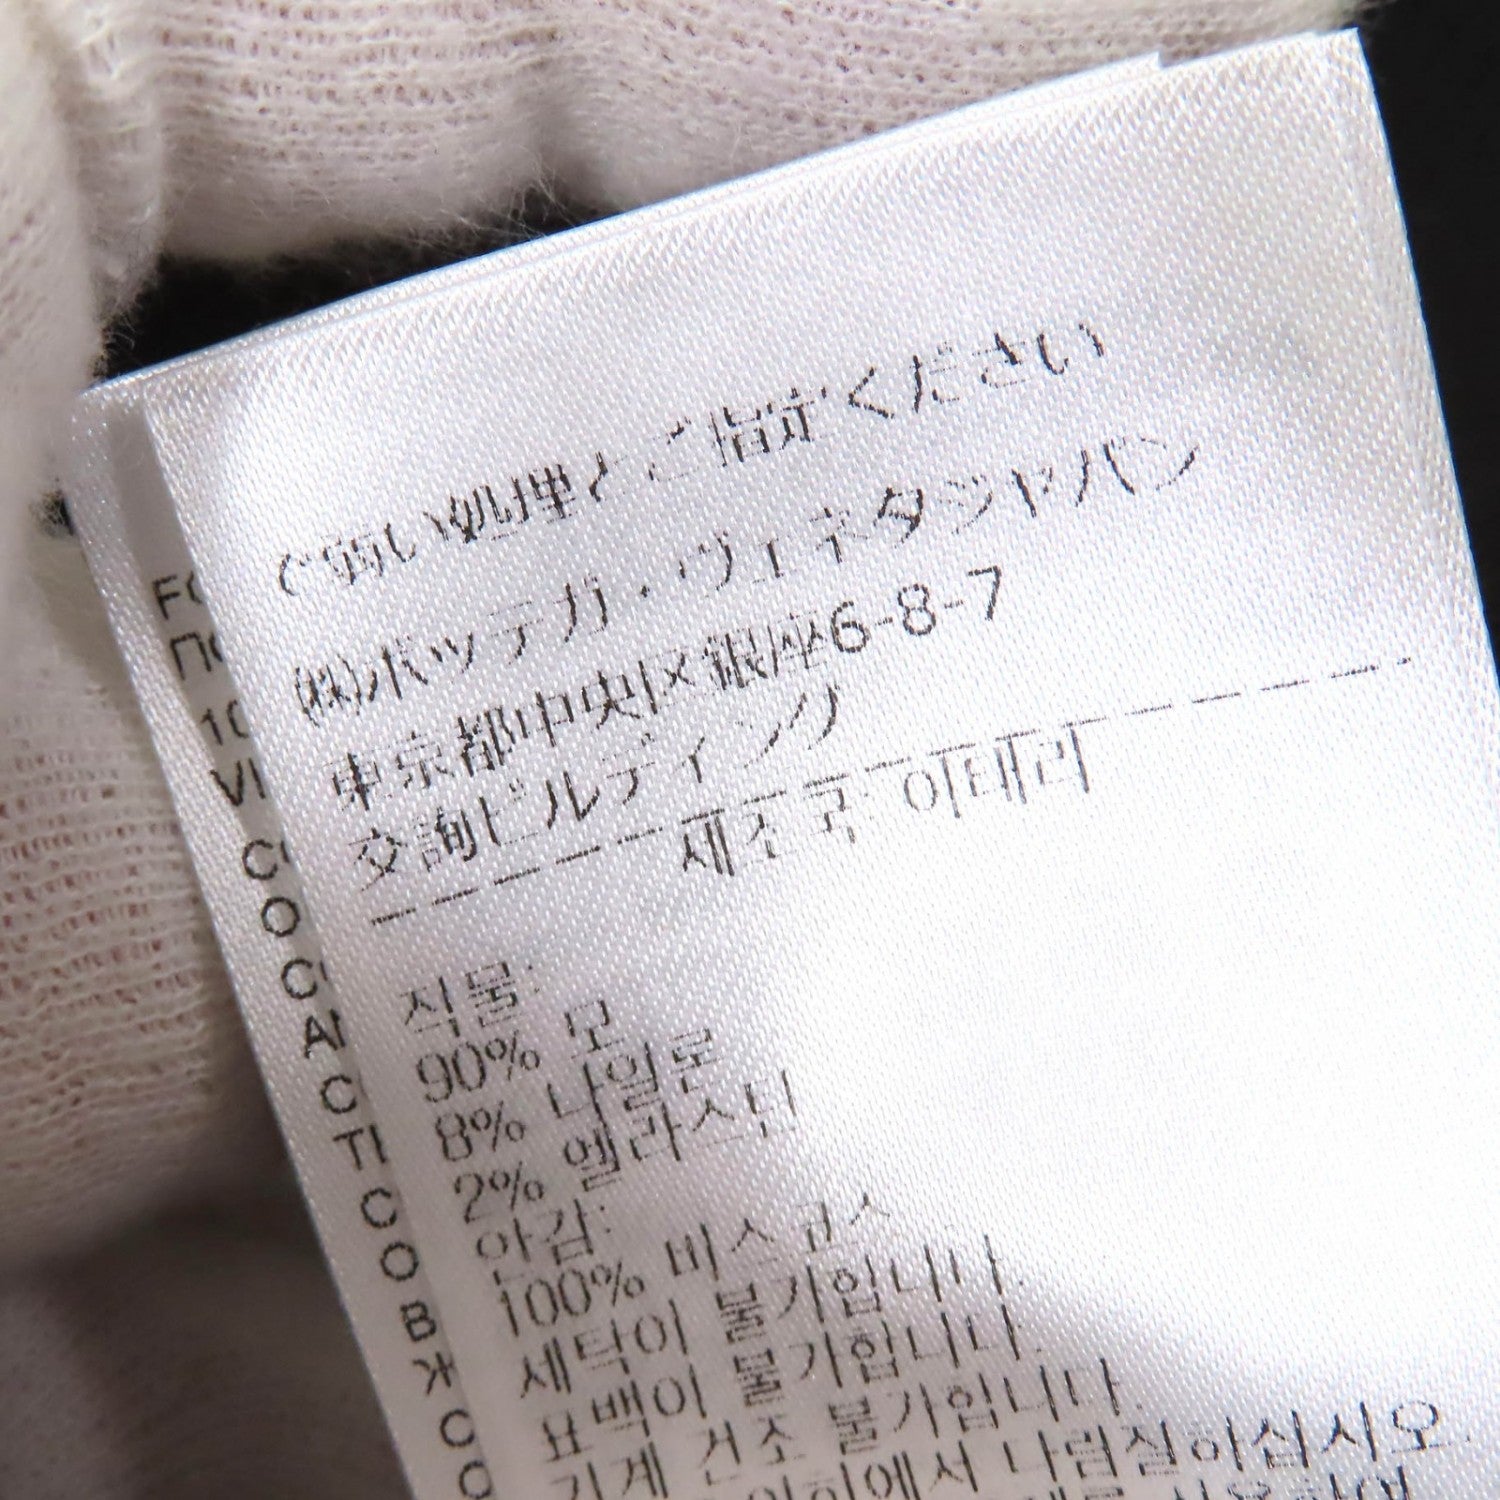 ぐ弱い処理とご指定ください
(株)ボッテガ・ヴェネタジャパン
東京都中央区銀座6-8-7
交詢ビルディング
제조국: 이태리
직물:
90% 모
8% 나일론
2% 엘라스틴
안감:
100% 비스코스
세탁이 불가합니다.
표백이 불가합니다.
기계 건조 불가합니다.
다림질하십시오.
VI
CO
AI
C
TI
CO
B
Ж
CO